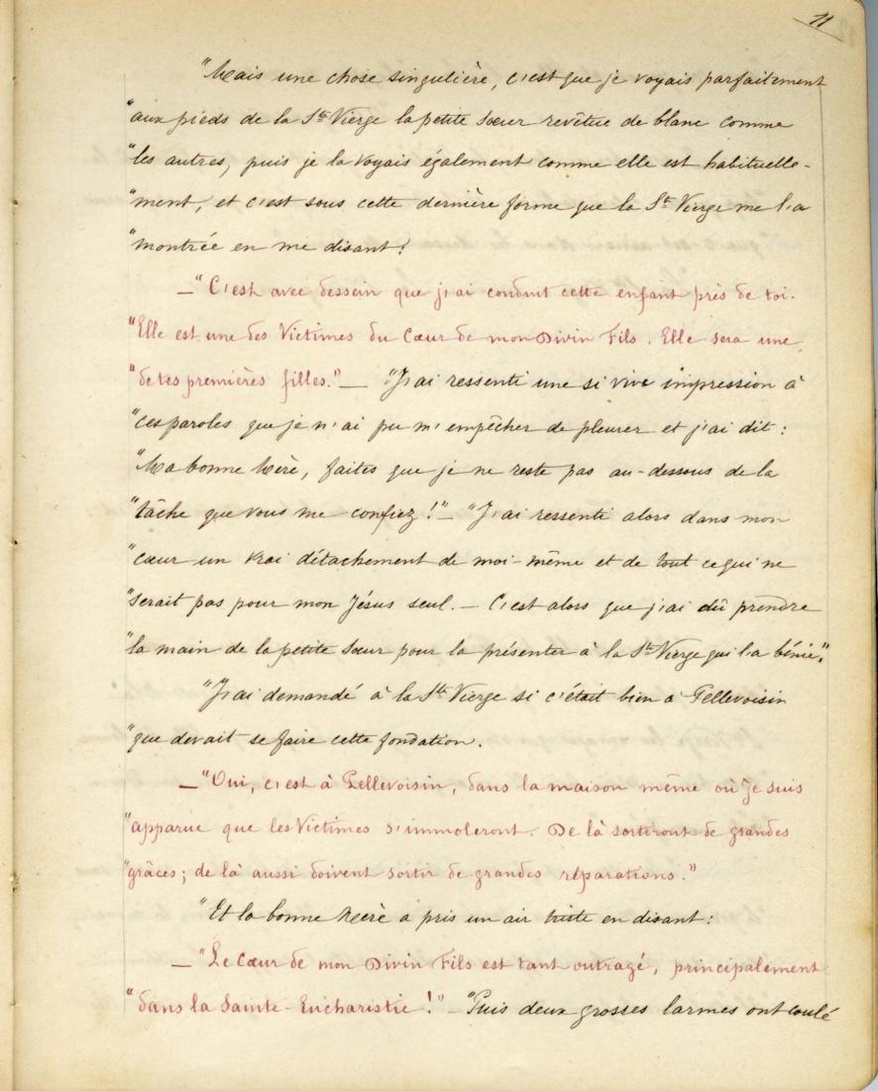 11
"Mais une chose singulière, c'est que je voyais parfaitement
"aux pieds de la Ste Vierge la petite sœur revêtue de blanc comme
"les autres, puis je la voyais également comme elle est habituelle-
"ment, et c'est sous cette dernière forme que la Ste Vierge me l'a
"montrée en me disant:
—"C'est avec dessein que j'ai conduit cette enfant près de toi.
"Elle est une des Victimes du Cœur de mon Divin Fils. Elle sera une
"de tes premières filles."— "J'ai ressenti une si vive impression à
"ces paroles que je n'ai pu m'empêcher de pleurer et j'ai dit:
"Ma bonne Mère, faites que je ne reste pas au-dessous de la
"tâche que vous me confiez!"— "J'ai ressenti alors dans mon
"cœur un vrai détachement de moi-même et de tout ce qui ne
"serait pas pour mon Jésus seul. — C'est alors que j'ai dû prendre
"la main de la petite sœur pour la présenter à la Ste Vierge qui l'a bénie."
"J'ai demandé à la Ste Vierge si c'était bien à Pellevoisin
"que devait se faire cette fondation.
—"Oui, c'est à Pellevoisin, dans la maison même où Je suis
"apparue que les Victimes s'immoleront. De là sortiront de grandes
"grâces; de là aussi doivent sortir de grandes réparations."
"Et la bonne Mère a pris un air triste en disant:
—"Le Cœur de mon Divin Fils est tant outragé, principalement
"dans la Sainte-Eucharistie!"—"Puis deux grosses larmes ont coulé